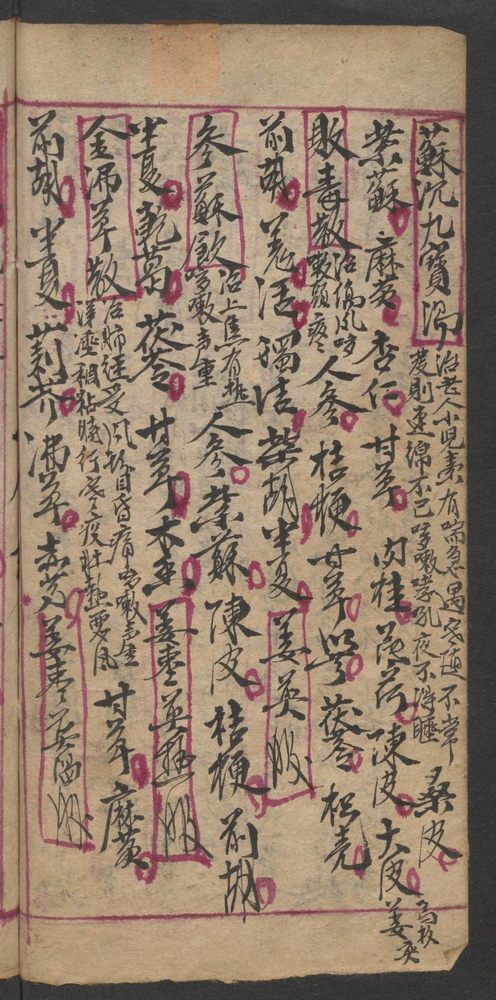 蘇沉九寶湯 治老人小兒素有喘急遇寒適不常發則連綿不已咳嗽哮吼夜不得睡 桑皮
紫蘇 麻黃 杏仁 甘草 肉桂 薄荷 陳皮 大皮 烏枚 姜煎
敗毒散 治傷風咳嗽頭疼 人參 桔梗 甘草 芎 茯苓 枳壳
前胡 羌活 獨活 柴胡 半夏 姜煎服
參蘇飲 治上焦有熱咳嗽声重 人參 紫蘇 陳皮 桔梗 前胡
半夏 乾葛 茯苓 甘草 木香 姜枣煎 服
金沸草散 治肺經受風 目昏 咳嗽声重 涎 相粘 甘草 麻黃
前胡 半夏 荊芥 沸草 赤芍 姜枣煎温服